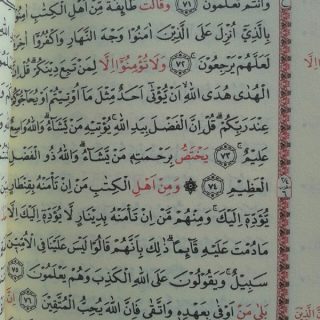 وَأَنتُمْ تَعْلَمُونَ ﴿٧١﴾ وَقَالَت طَّآئِفَةٌ مِّنْ أَهْلِ الْكِتَٰبِ ءَامِنُوا۟
بِالَّذِىٓ أُنزِلَ عَلَى الَّذِينَ ءَامَنُوا۟ وَجْهَ النَّهَارِ وَاكْفُرُوٓا۟ ءَاخِرَهُۥ
لَعَلَّهُمْ يَرْجِعُونَ ﴿٧٢﴾ وَلَا تُؤْمِنُوٓا۟ إِلَّا لِمَن تَبِعَ دِينَكُمْ قُلْ إِنَّ
الْهُدَىٰ هُدَى اللَّهِ أَن يُؤْتَىٰٓ أَحَدٌ مِّثْلَ مَآ أُوتِيتُمْ أَوْ يُحَآجُّوكُمْ
عِندَ رَبِّكُمْ قُلْ إِنَّ الْفَضْلَ بِيَدِ اللَّهِ يُؤْتِيهِ مَن يَشَآءُ وَاللَّهُ وَٰسِعٌ
عَلِيمٌ ﴿٧٣﴾ يَخْتَصُّ بِرَحْمَتِهِۦ مَن يَشَآءُ وَاللَّهُ ذُو الْفَضْلِ
الْعَظِيمِ ﴿٧٤﴾ وَمِنْ أَهْلِ الْكِتَٰبِ مَنْ إِن تَأْمَنْهُ بِقِنطَارٍ
يُؤَدِّهِۦٓ إِلَيْكَ وَمِنْهُم مَّنْ إِن تَأْمَنْهُ بِدِينَارٍ لَّا يُؤَدِّهِۦٓ إِلَيْكَ إِلَّا
مَا دُمْتَ عَلَيْهِ قَآئِمًا ذَٰلِكَ بِأَنَّهُمْ قَالُوا۟ لَيْسَ عَلَيْنَا فِى الْأُمِّيِّۦنَ
سَبِيلٌ وَيَقُولُونَ عَلَى اللَّهِ الْكَذِبَ وَهُمْ يَعْلَمُونَ ﴿٧٥﴾
بَلَىٰ مَنْ أَوْفَىٰ بِعَهْدِهِۦ وَاتَّقَىٰ فَإِنَّ اللَّهَ يُحِبُّ الْمُتَّقِينَ ﴿٧٦﴾ إِنَّ